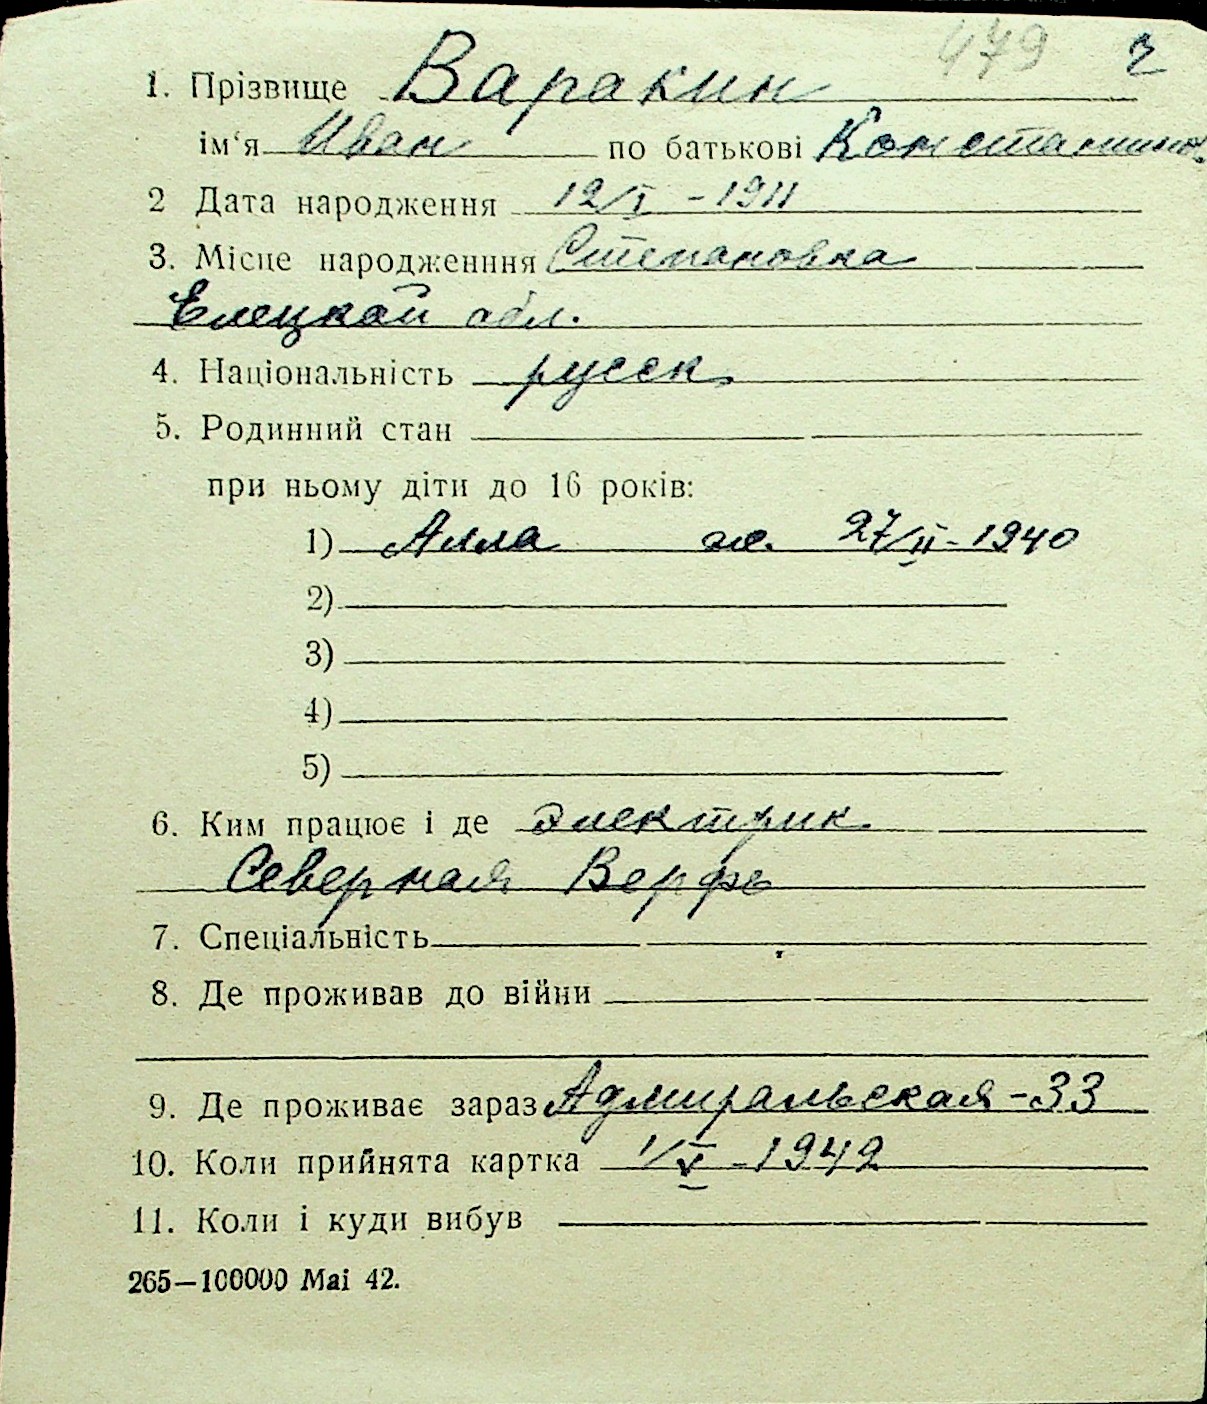 479 2
1. Прізвище Варакин
ім‘я Иван по батькові Константинов.
2 Дата народження 12/I - 1911
3. Місце народженння Степановка
Елецкай обл.
4. Національність русск.
5. Родинний стан
при ньому діти до 16 років:
1) Алла ж. 27/II - 1940
2)
3)
4)
5)
6. Ким працює і де электрик
Северная Верфь
7. Спеціальність
8. Де проживав до війни
9. Де проживає зараз Адмиральская - 33
10. Коли прийнята картка 1/V - 1942
11. Коли і куди вибув
265—100000 Mai 42.